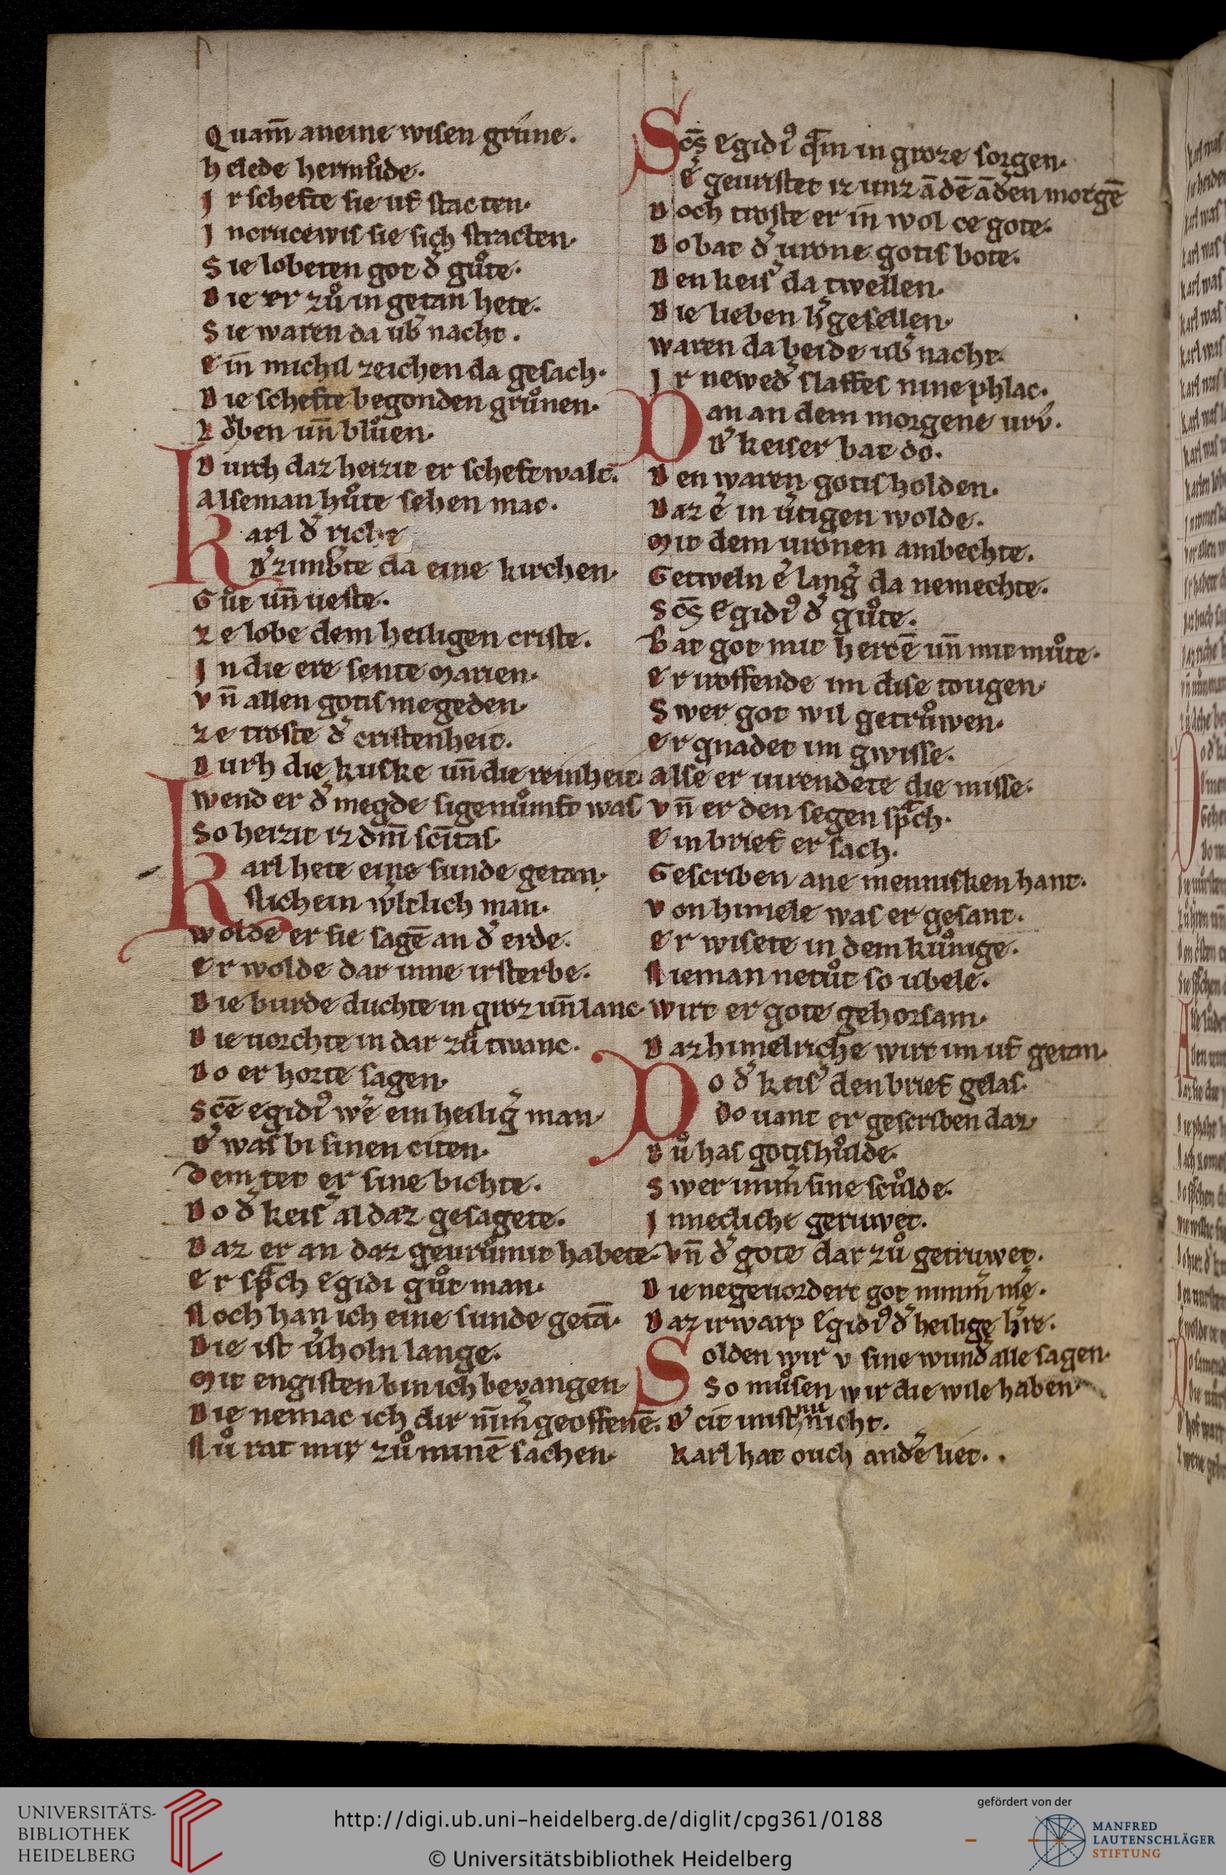 Quam̄ aneine wisen grúne.
helede hermſide.
Ir schefte sie uf stacten.
Incrucewis sie sich stracten.
Sie lobeten got d̾ gůte.
Die er zů in getan hete.
Sie waren da ub̾ nacht.
ein michil zeichen da gesach.
Die schefte begonden grůnen.
Lo̾ben un̄ blůen.
Durch daz heizit er scheftwalt.
Alseman hůte sehen mac.
Karl d̾ riche
d̾ zimb̾te da eine kirchen.
Gůt un̄ ueste.
ze lobe dem heiligen criste.
In die ere sente Marien.
vn̄ allen gotis megeden.
ze troste d̾ cristenheit.
Durh die kuske un̄ die reinheit.
wend er d̾ megde sigenůmft was
So heizit iz dm̄ sc̄itas.
Karl hete eine sunde getan.
slich ein w̾ltlich man.
wolde er sie sagē an d̾ erde.
er wolde dar inne irsterbe.
Die burde duchte in groz un̄ lanc.
Die uorchte in dar zů twanc.
Do er horte sagen.
Scē egidi᾽ we̾ ein heilig̾ man.
d̾ was bi sinen citen.
dem tet er sine bichte.
Do d̾ keis̾ al daz gesagete.
Daz er an daz geurůmit habete.
er sp̾ch egidi gůt man.
Noch han ich eine sunde getā.
Die ist u̾holn lange.
Mit engisten bin ich bevangen
Die nemac ich dir nim̄ geoffenē.
Nů rat mir zů minē sachen.
Sc̄s egidi᾽ q̾m in groze sorgen.
e̾ geuristet iz unz ā dē ād̾en morgē
Doch troste er in̄ wol ce gote.
Do bat d̾ urone gotis bote.
Den keis̾ da twellen.
Die lieben h̾gesellen.
waren da beide ub̾ nacht.
Ir newed̾ slaffes nine phlac.
Dan an dem morgene urů.
d̾ keiser bat do.
Den waren gotis holden.
Daz e̾ in u̾tigen wolde.
Mit dem uronen ambechte.
Getweln e̾ lang̾ da nemechte.
Sc̄s egidi᾽ d̾ gůte.
Bat got mit hertē un̄ mit můte.
er uoffende im dise tougen.
Swer got wil getrůwen.
er gnadet im gwisse.
alse er uurendete die misse.
vn̄ er den segen sp̾ch.
ein brief er sach.
Gescriben ane mennisken hant.
von himele was er gesant.
er wisete in dem kůnige.
Nieman netůt so ubele.
wirt er gote gehorsam.
Daz himelriche wirt im uf getan.
Do d̾ keis̾ den brief gelas.
Do uant er gescriben daz.
Dů has gotis hůlde.
Swer imm̾ sine scůlde.
Innecliche geruwet.
vn̄ d̾ gote dar zů getruwet.
Die negeuordert got nimm̾ me̾.
Daz irwarp egidi᾽ d̾ heilige h̾re.
Solden wir v sine wund̾ alle sagen.
So můsen wir die wile haben
d̾ cit unist nu nicht.
Karl hat ouch and̾e liet.
UNIVERSITÄTS-
BIBLIOTHEK
HEIDELBERG
http://digi.ub.uni-heidelberg.de/diglit/cpg361/0188
© Universitätsbibliothek Heidelberg
gefördert von der
MANFRED
LAUTENSCHLÄGER
STIFTUNG